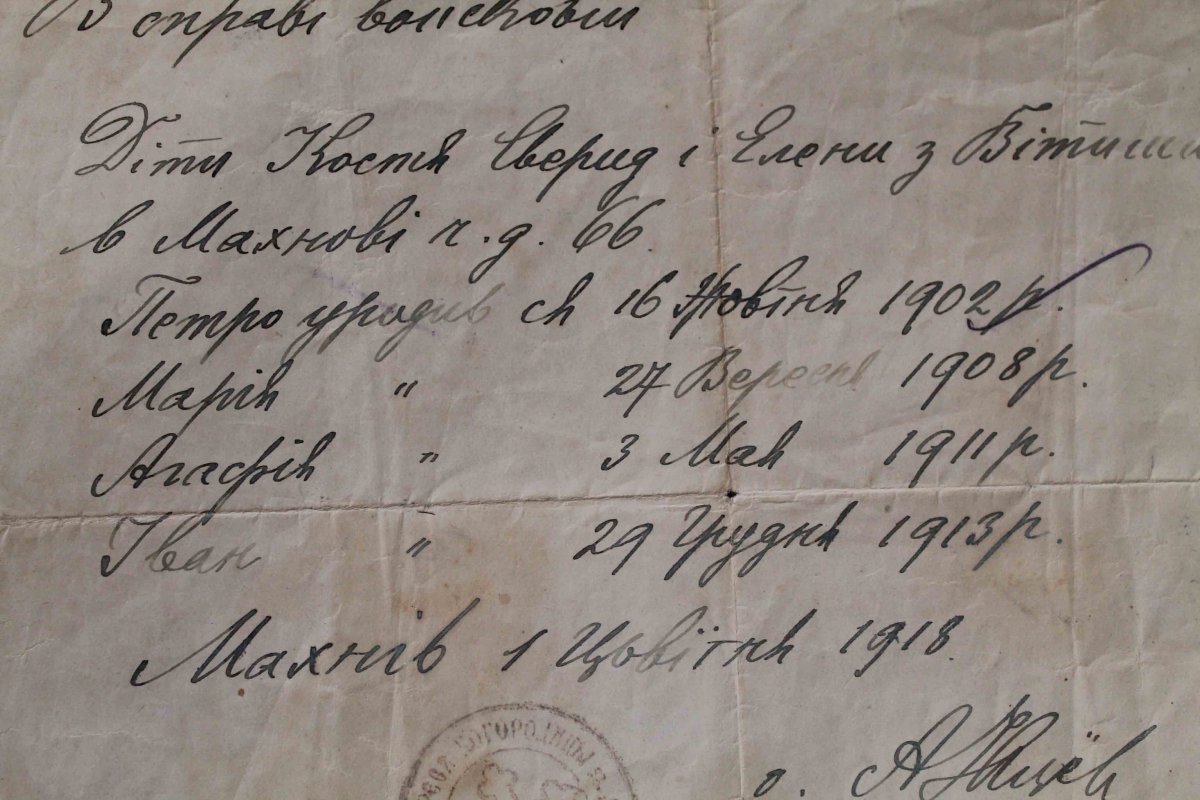 В справі воисковий
Діти Костя Сверид і Елени з
в Махнові ч. д. 66.
Петро уродив ся 16 Жовтня 1902 р.
Марія " 27 Вересня 1908 р.
Агафія " 3 Мая 1911 р.
Іван " 29 Грудня 1913 р.
Махнів 1 Цьвітня 1918.
БОГОРОДИЦЫ
о.